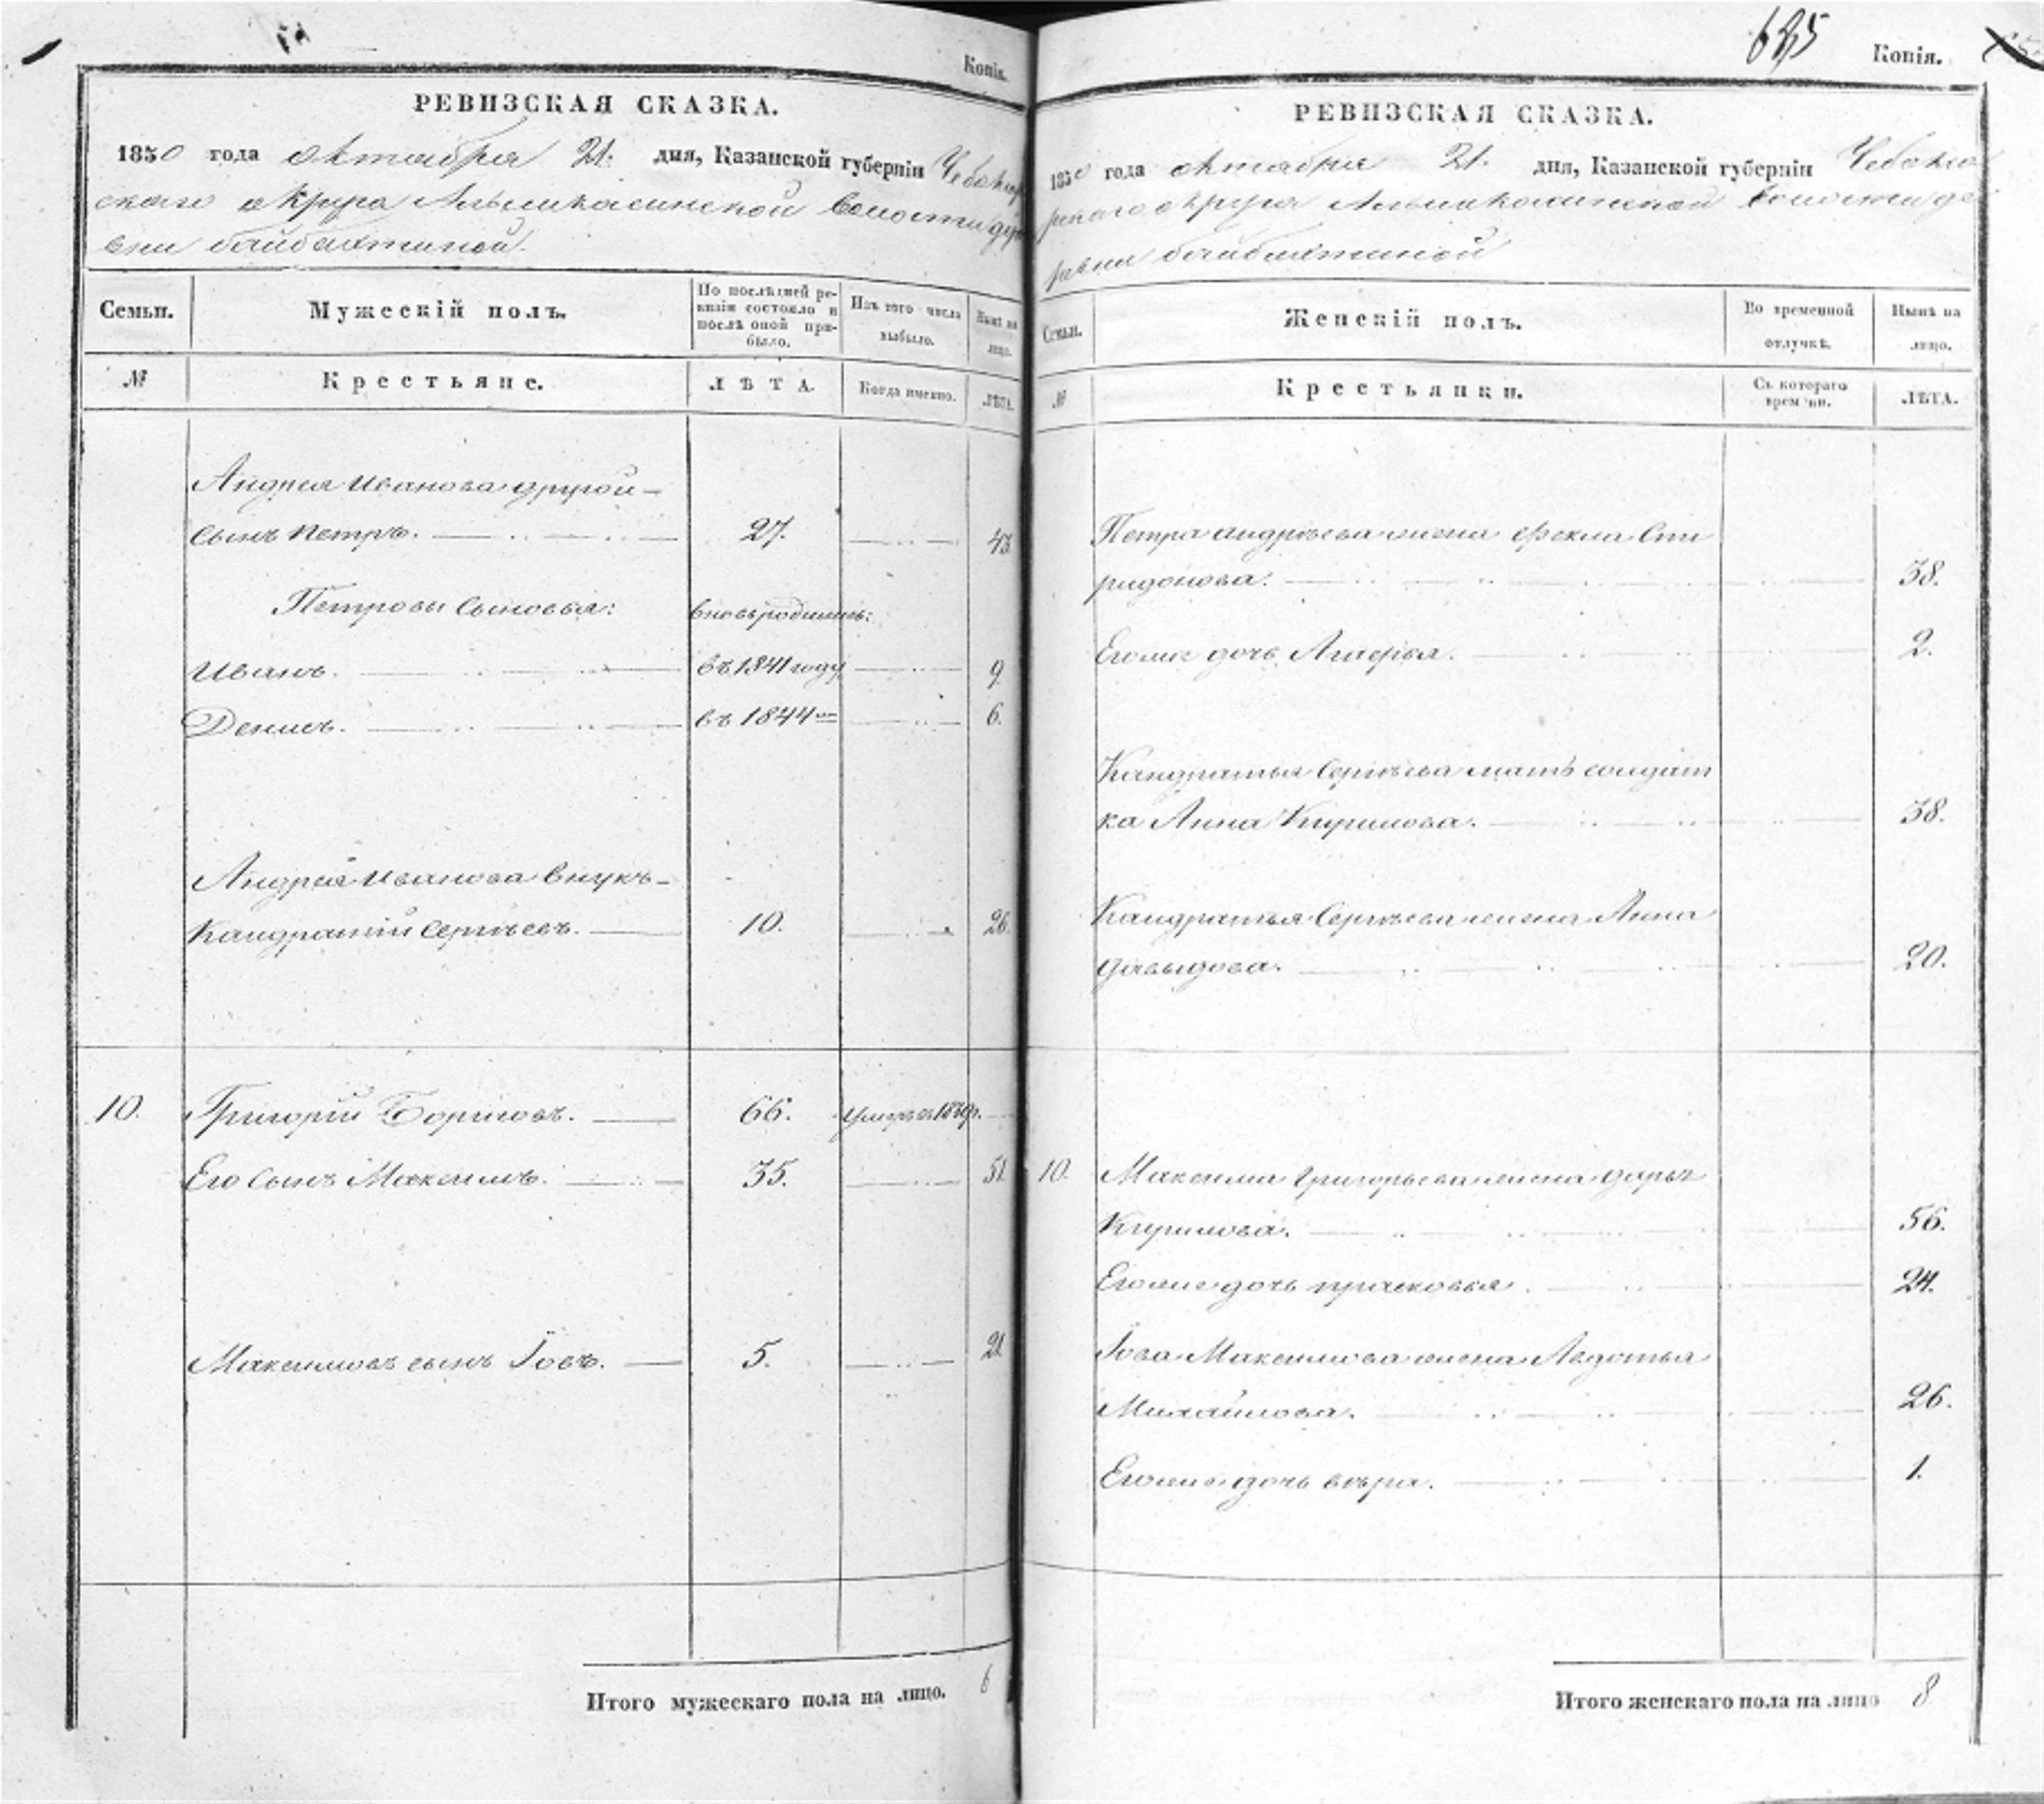 Копія.
РЕВИЗСКАЯ СКАЗКА.
1850 года октября 21. дня, Казанской губерніи Чебокар
скаго округа Альмикасинской волости дере
вни байбахтиной.
Семьи. Мужескій полъ. По послѣдней ре- Изъ того числа Нынѣ на
визіи состояло и выбыло. лицо.
послѣ оной при-
было.
№ Крестьяне. ЛѢТА. Когда именно. ЛѢТА.
Андрея Иванова другой
сынъ Петръ. 27. 43
Петровы сыновья: вновьродились:
Иванъ. въ 1841 году 9
Денисъ. въ 1844 6.
Андрея Иванова внукъ
Кандратій Сергѣевъ. 10. 26.
10. Григорій Борисовъ. 66.
Его сынъ Максимъ. 35. 51
Максимовъ сынъ Іовъ. 5. 21
Итого мужескаго пола на лицо. 6
635 Копія.
РЕВИЗСКАЯ СКАЗКА.
1850 года октября 21. дня, Казанской губерніи Чебокса
рскаго округа Альмикасинской волости де
ревни байбахтиной
Семьи. Женскій полъ. Во временной Нынѣ на
отлучкѣ. лицо.
№ Крестьянки. Съ котораго ЛѢТА.
времени.
Петра андрѣева жена Фекла Спи
ридонова. 38.
Егоже дочь 2.
Кандратья Сергѣева мать солдат
ка Анна Кирилова. 38.
Кандратья Сергѣева жена Анна
давыдова. 20.
10. Максима Григорьева жена дарья
Кирилова. 56.
Егоже дочь прасковья. 24.
Іова Максимова жена Авдотья
Михайлова. 26.
Егоже дочь вѣра. 1.
Итого женскаго пола на лицо 8